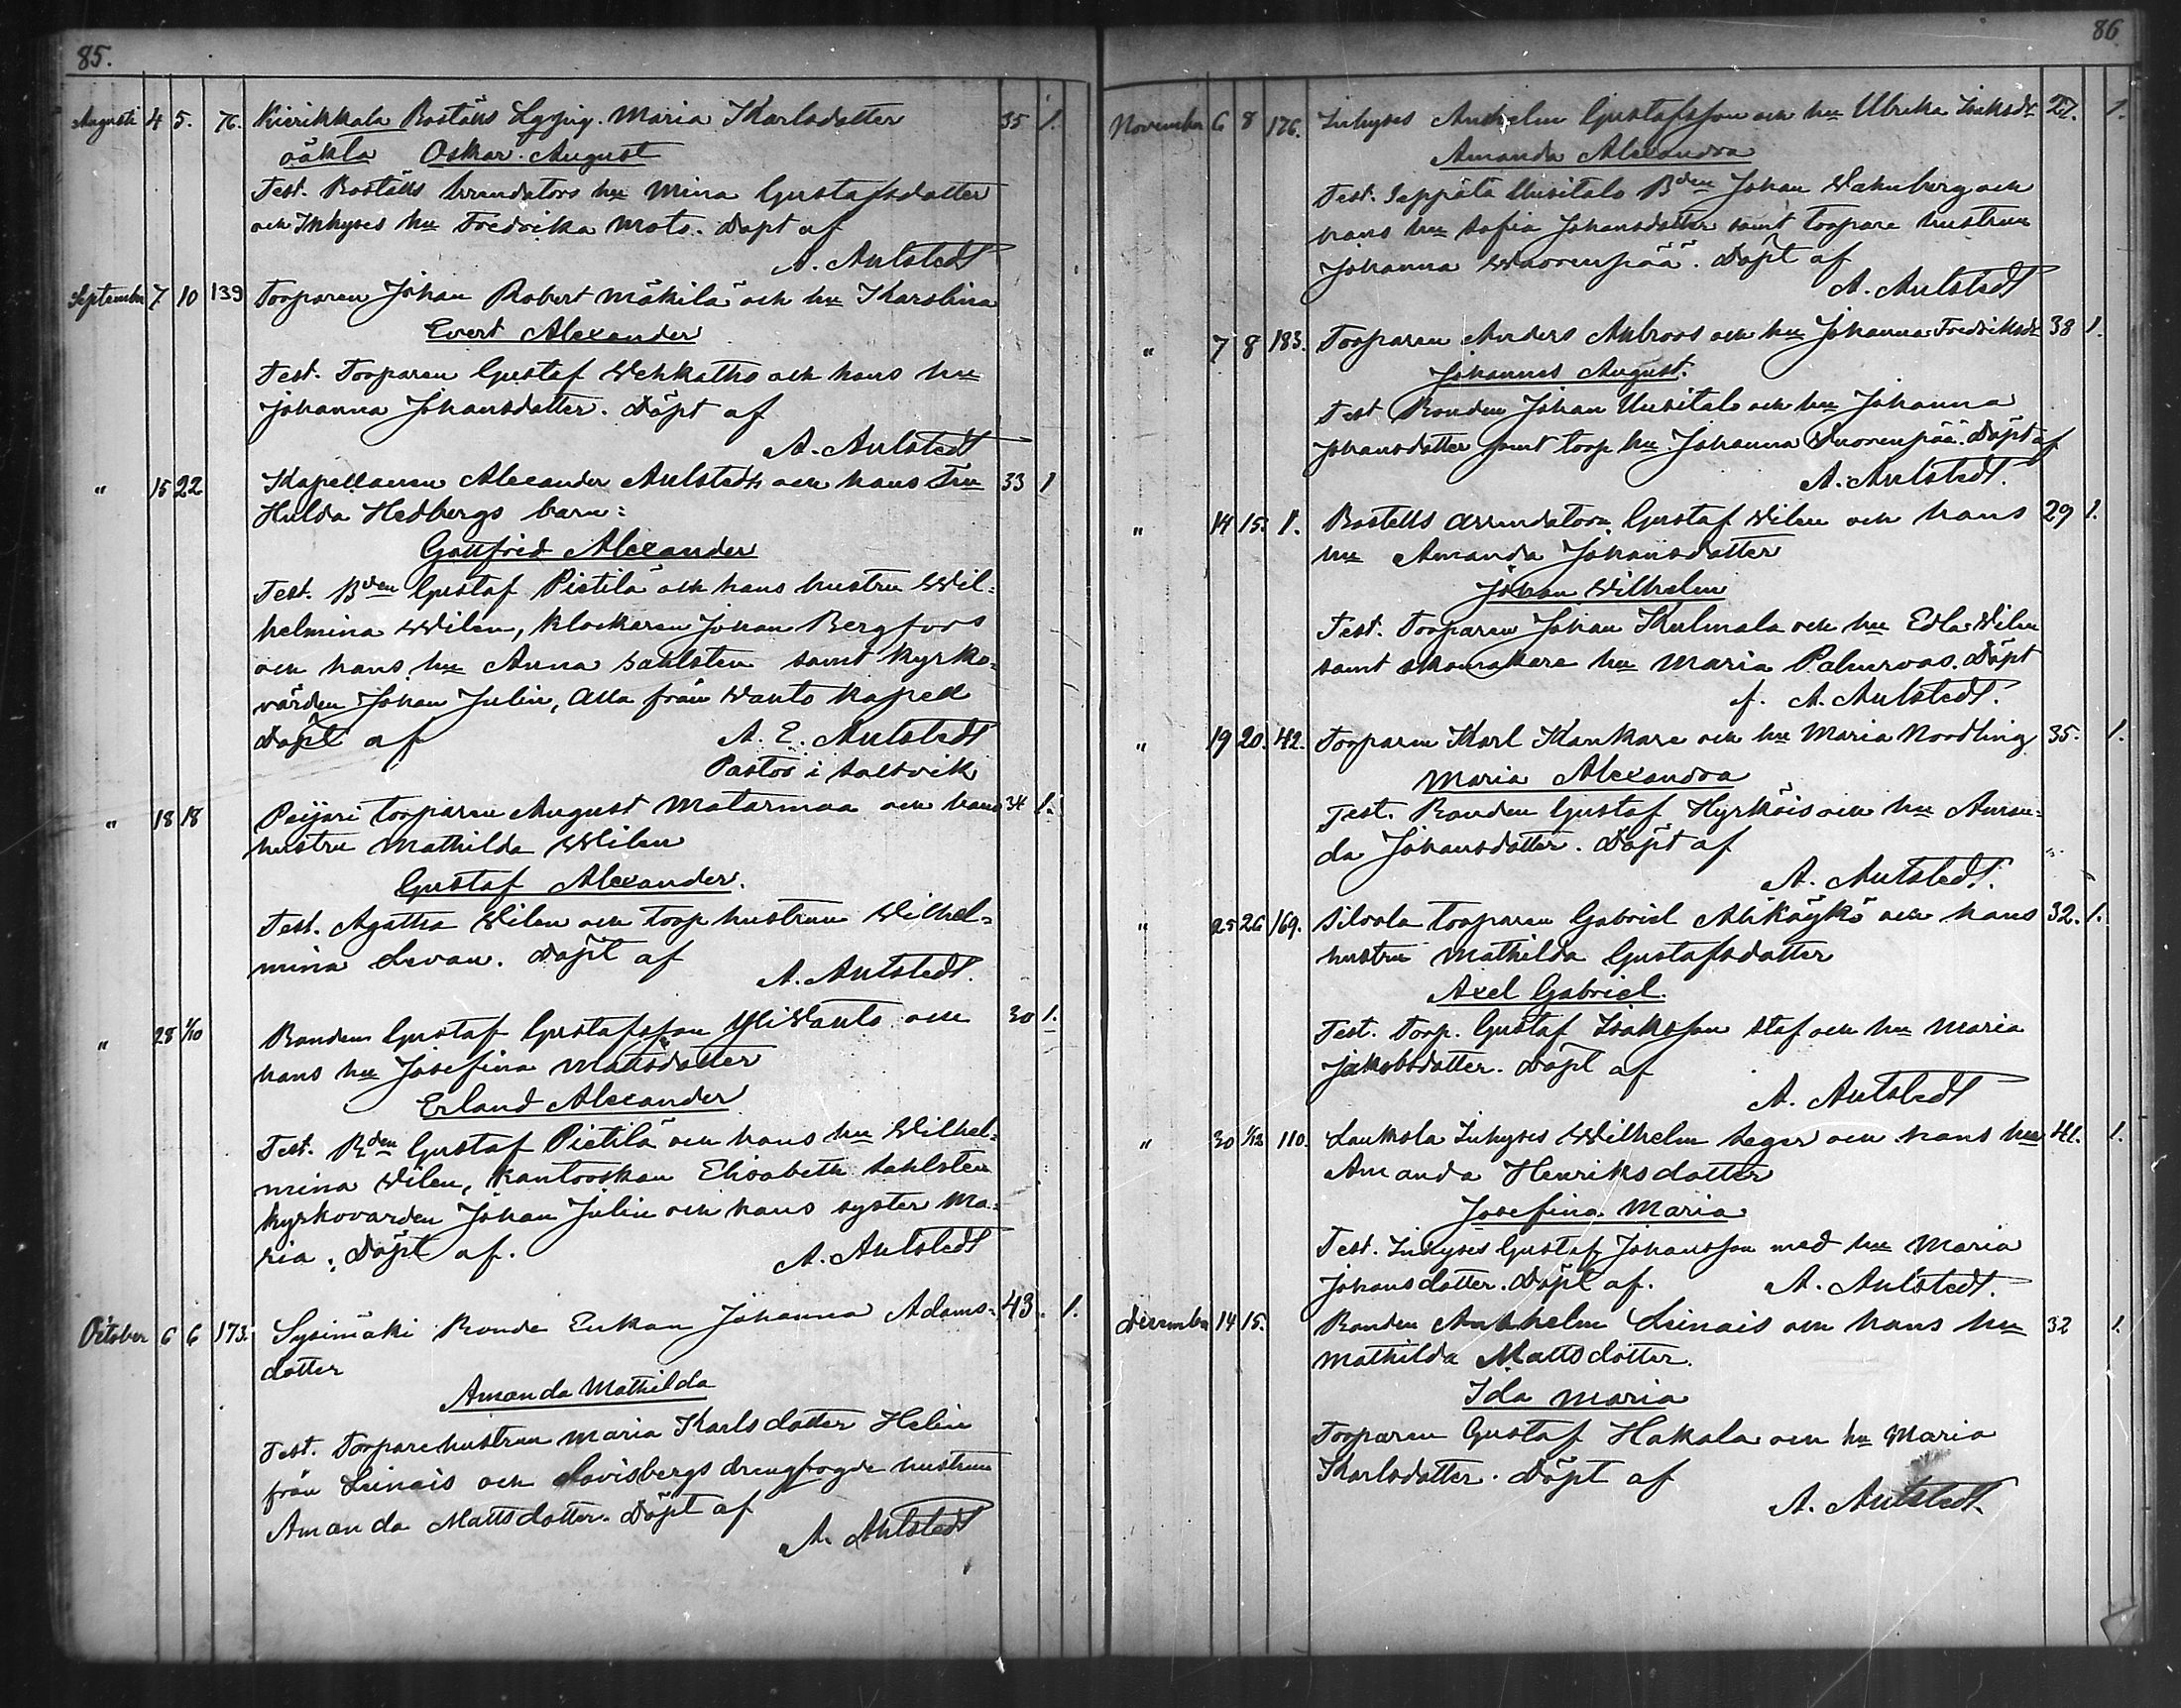 85.
Augusti 4 5. 76. Kierikkala Boställs Lgpig. Maria Karlsdotter 35 1.
oäkta Oskar August
Test. Boställs Arrendators hu Mina Gustafsdotter
och Inhyses hu Fredrika Mats. Döpt af
A. Ahlstedt
September 7 10 139 Torparen Johan Robert Mäkilä och hu Karolina
Evert Alexander
Test. Torparen Gustaf Wehkaths och hans hu
Johanna Johansdotter. Döpt af
A. Ahlstedt
" 15 22 Kapellanen Alexander Ahlstedts och hans Fru 33 1
Hulda Hedbergs barn:
Gottfrid Alexander
Test. Bden Gustaf Pietilä och hans hustru Wil-
helmina Wilen, klockaren Johan Bergfors
och hans hu Anna Sahlsten samt kyrko-
värden Johan Julin, alla från Wanto kapell
Döpt af A. E. Ahlstedt
Pastor i Saltvik
" 18 18 Peijari torparen August Matarmaa och hans 34 1.
hustru Mathilda Wilen
Gustaf Alexander.
Test. Agatha Wilen och torp hustrun Wilhel-
mina Levan. Döpt af
A. Ahlstedt.
" 28 1/10 Bonden Gustaf Gustafsson Yli Wanto och 30 1.
hans hu Josefina Mattsdotter
Erland Alexander
Test. Bden Gustaf Pietilä och hans hu Wilhel-
mina Wilen, kantorskan Elisabeth Sahlsten
kyrkovärden Johan Julin och hans syster Ma-
ria. Döpt af. A. Ahlstedt
October 6 6 173. Sysimäki Bonde Enkan Johanna Adams- 43 1.
dotter
Amanda Mathilda
Test. Torparehustrun Maria Karlsdotter Helin
från Leinais och Lovisbergs drengfogde hustrun
Amanda Mattsdotter. Döpt af
A. Ahlstedt
86
November 6 8 176. Inhyses Anshelm Gustafsson och hu Ulrika Isaksdr 27. 1.
Amanda Alexandra
Test. Seppälä Uusitalo Bden Johan Wahnberg och
hans hu Sofia Johansdotter samt torpare hustrun
Johanna Wuorenpää. Döpt af
A. Ahlstedt
" 7 8 183. Torparen Anders Ahlroos och hu Johanna Fredriksdr 38 1.
Johannes August.
Test Bonden Johan Uusitalo och hu Johanna
Johansdotter samt torp hu Johanna Wuorenpää. Döpt af
A. Ahlstedt.
" 14 15. 1. Bostells arrendatorn Gustaf Wilen och hans 29 1.
hu Amanda Johansdotter
Johan Wilhelm
Test. Torparen Johan Kulmala och hu Edla Wilen
samt skomakare hu Maria Palmroos. Döpt
af. A. Ahlstedt.
" 19 20. 42. Torparen Karl Kankare och hu Maria Nordling 35. 1.
Maria Alexandra
Test. Bonden Gustaf Hyrköis och hu Aman-
da Johansdotter. Döpt af
A. Ahlstedt.
" 25 26 169. Silvola torparen Gabriel Alikäykö och hans 32. 1.
hustru Mathilda Gustafsdotter
Axel Gabriel.
Test. Torp. Gustaf Isaksson Staf och hu Maria
Jakobsdotter. Döpt af
A. Ahlstedt
" 30 1/12 110. Laukola Inhyses Wilhelm Seger och hans hu 41. 1.
Amanda Henriksdotter
Josefina Maria
Test. Inhyses Gustaf Johansson med hu Maria
Johansdotter. Döpt af. A. Ahlstedt.
December 14 15. Bonden Anshelm Leinais och hans hu 32 1.
Mathilda Mattsdotter.
Ida Maria
Torparen Gustaf Hakala och hu Maria
Karlsdotter. Döpt af
A. Ahlstedt.